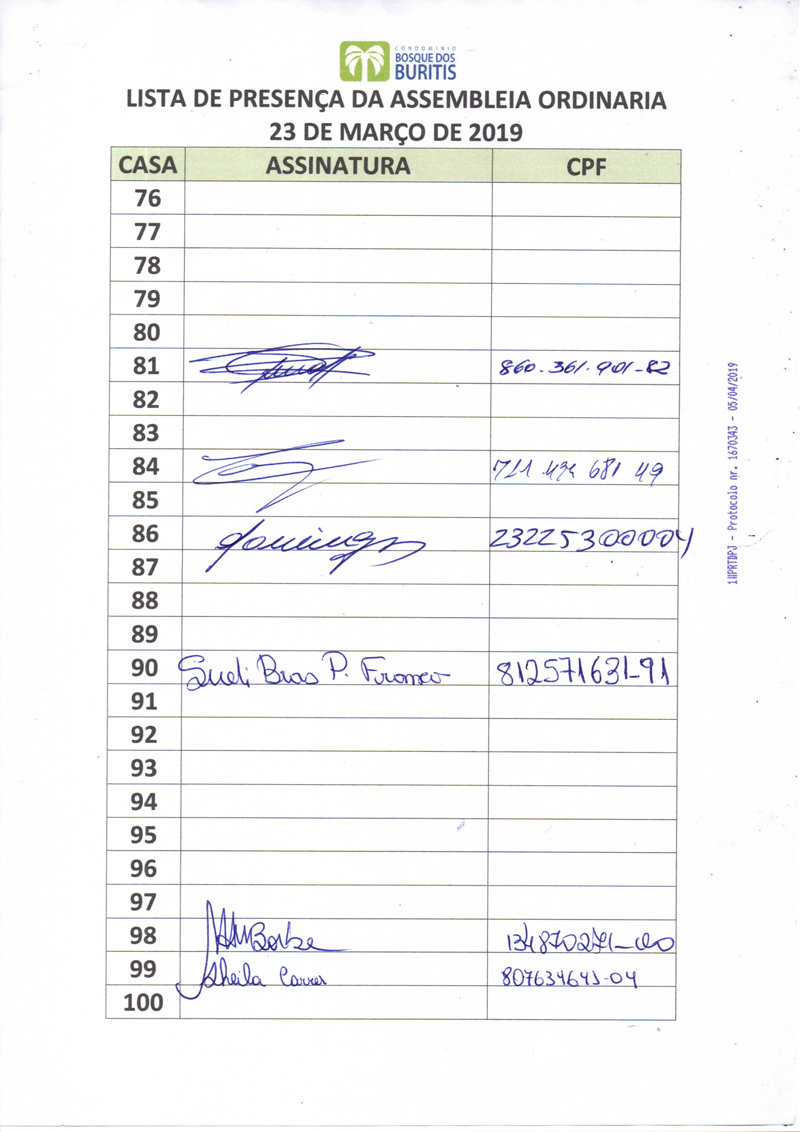 CONDOMÍNIO
BOSQUE DOS
BURITIS
LISTA DE PRESENÇA DA ASSEMBLEIA ORDINARIA
23 DE MARÇO DE 2019
CASA ASSINATURA CPF
76
77
78
79
80
81 860.361.901-82
82
83
84 681 49
85
86 23225300004
87
88
89
90 Sueli Bras P. 812571631-91
91
92
93
94
95
96
97
98
99 Sheila
100
1ºPRTDPJ - Protocolo nr. 1670343 - 05/04/2019